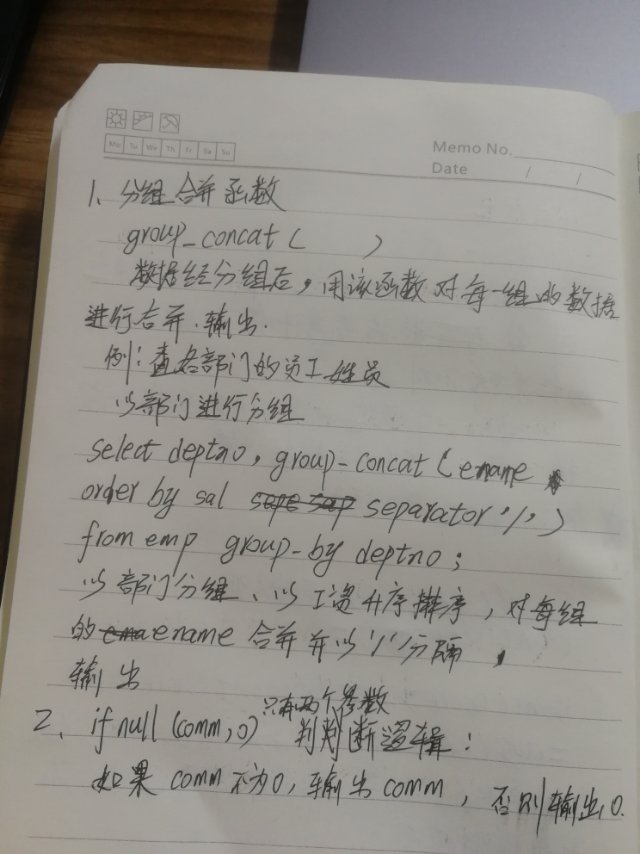 Mo Tu We Th Fr Sa Su
Memo No.
Date / /
1、分组合并函数
group_concat ( )
数据经分组后，用该函数对每一组的数据
进行合并.输出.
例：查各部门的员工姓员
以部门进行分组
select deptno, group-concat (ename
order by sal separator '/' )
from emp group-by deptno;
以部门分组、以工资升序排序，对每组
的ename 合并并以'/'分隔，
输出
只有两个参数
2、if null (comm, 0) 判判断逻辑：
如果 comm 不为0, 输出 comm, 否则输出0.